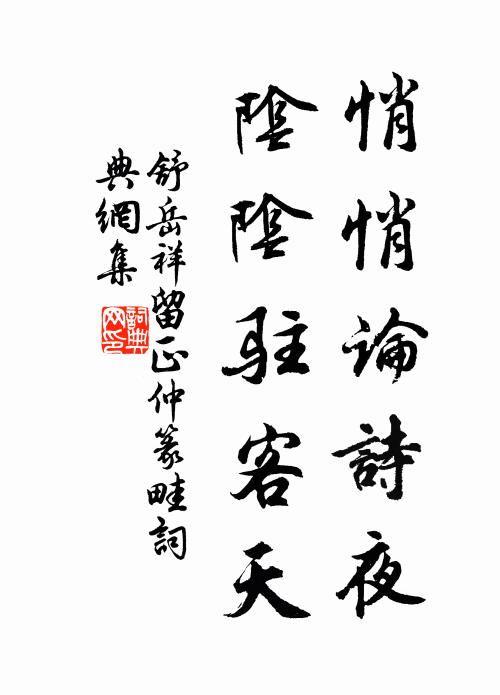 悄悄論詩夜
陰陰駐客天
舒岳祥留正仲篆畦詞
典網集
詞典
网印